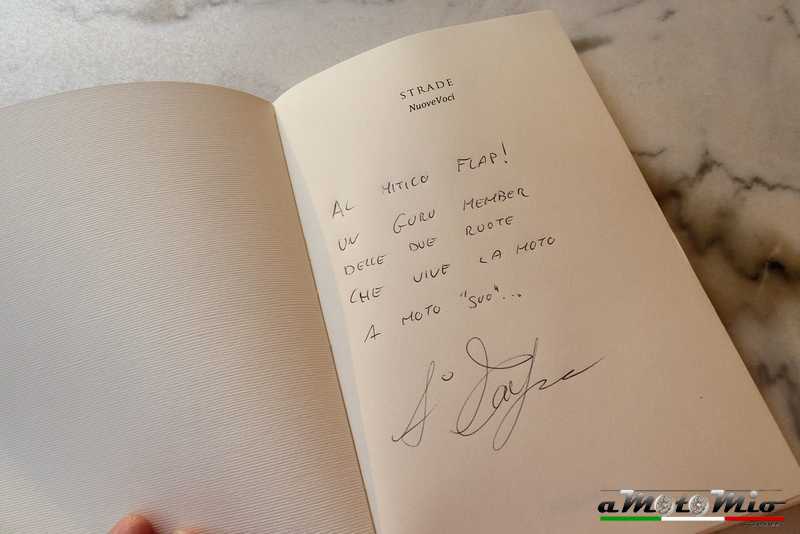 STRADE
NuoveVoci
AL MITICO FLAP!
UN GURU MEMBER
DELLE DUE RUOTE
CHE VIVE LA MOTO
A MOTO "SUO"...
aMotoMio